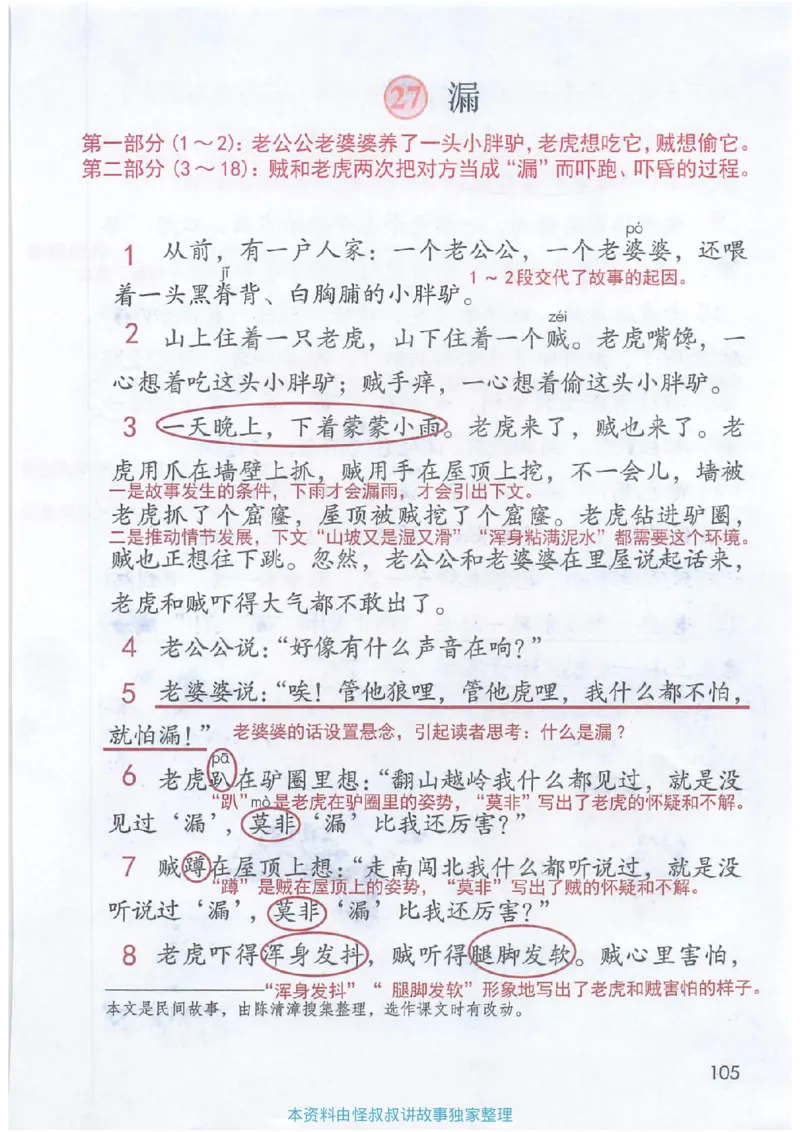 27 漏
第一部分（1～2）：老公公老婆婆养了一头小胖驴，老虎想吃它，贼想偷它。
第二部分（3～18）：贼和老虎两次把对方当成“漏”而吓跑、吓昏的过程。
pó
1 从前，有一户人家：一个老公公，一个老婆婆，还喂
jǐ
1～2段交代了故事的起因。
着一头黑脊背、白胸脯的小胖驴。
zéi
2 山上住着一只老虎，山下住着一个贼。老虎嘴馋，一
心想着吃这头小胖驴；贼手痒，一心想着偷这头小胖驴。
3 一天晚上，下着蒙蒙小雨。老虎来了，贼也来了。老
虎用爪在墙壁上抓，贼用手在屋顶上挖，不一会儿，墙被
一是故事发生的条件，下雨才会漏雨，才会引出下文。
老虎抓了个窟窿，屋顶被贼挖了个窟窿。老虎钻进驴圈，
二是推动情节发展，下文“山坡又是湿又滑”“浑身粘满泥水”都需要这个环境。
贼也正想往下跳。忽然，老公公和老婆婆在里屋说起话来，
老虎和贼吓得大气都不敢出了。
4 老公公说：“好像有什么声音在响？”
5 老婆婆说：“唉！管他狼哩，管他虎哩，我什么都不怕，
就怕漏！”
老婆婆的话设置悬念，引起读者思考：什么是漏？
pā
6 老虎趴在驴圈里想：“翻山越岭我什么都见过，就是没
“趴”是老虎在驴圈里的姿势，“莫非”写出了老虎的怀疑和不解。
mò
见过‘漏’，莫非‘漏’比我还厉害？”
7 贼蹲在屋顶上想：“走南闯北我什么都听说过，就是没
“蹲”是贼在屋顶上的姿势，“莫非”写出了贼的怀疑和不解。
听说过‘漏’，莫非‘漏’比我还厉害？”
8 老虎吓得浑身发抖，贼听得腿脚发软。贼心里害怕，
“浑身发抖”“腿脚发软”形象地写出了老虎和贼害怕的样子。
本文是民间故事，由陈清漳搜集整理，选作课文时有改动。
105
本资料由怪叔叔讲故事独家整理